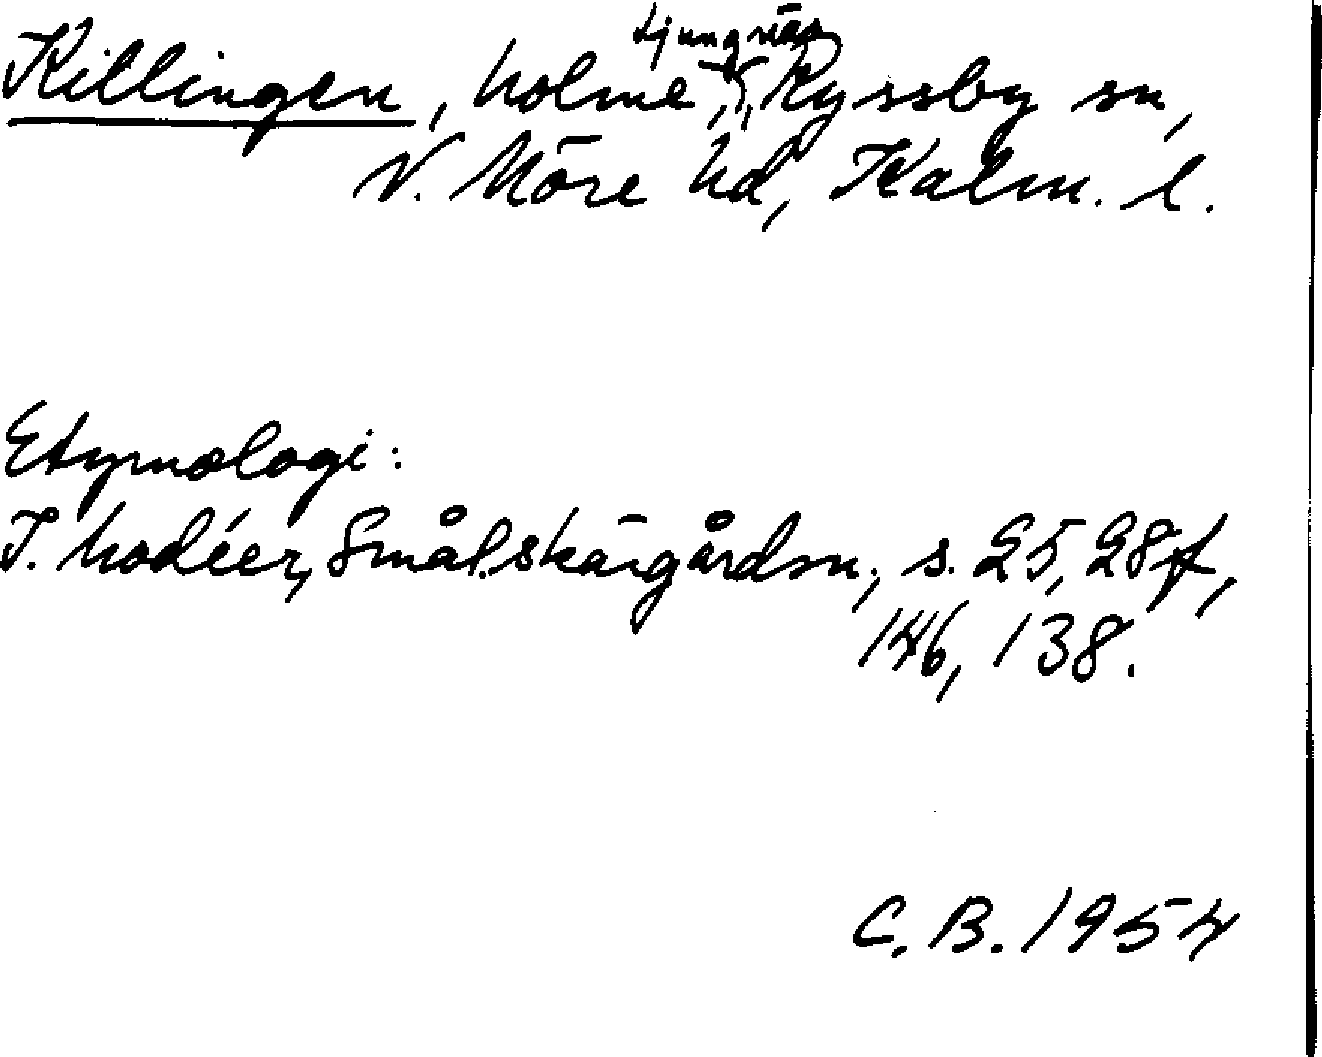 Killingen, holme, Ljungnäs, Ryssby sn,
N. Möre hd, Kalm. l.
Etymologi:
I. Modéer, Smål. skärgårdsn., s. 25, 28 f,
146, 138.
C. B. 1954